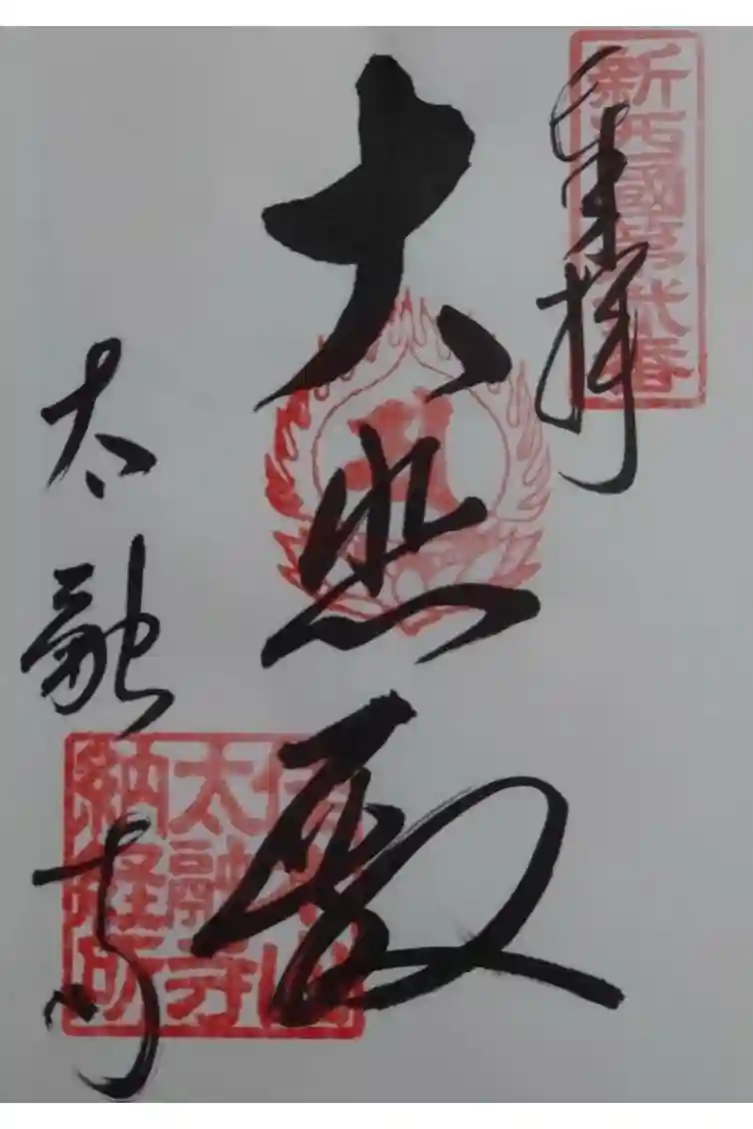 新西國第弐番
奉拝
大悲殿
太融寺
佳木山
太融寺
納経所